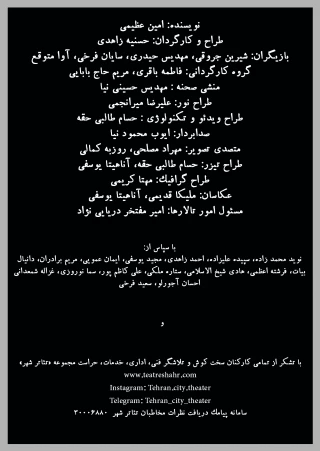 نویسنده: امین عظیمی
طراح و کارگردان: حسنیه زاهدی
بازیگران: شیرین جروقی، مهدیس حیدری، سایان فرخی، آوا متوقع
گروه کارگردانی: فاطمه باقری، مریم حاج بابایی
منشی صحنه : مهدیس حسینی نیا
طراح نور: علیرضا میرانجمی
طراح ویدئو و تکنولوژی : حسام طالبی حقه
صدابردار: ایوب محمود نیا
متصدی تصویر: مهراد مصلحی، روزبه کمالی
طراح تیزر: حسام طالبی حقه، آناهیتا یوسفی
طراح گرافیک: مهتا کریمی
عکاسان: ملیکا قدیمی، آناهیتا یوسفی
مسئول امور تالارها: امیر مفتخر دریایی نژاد
با سپاس از:
نوید محمد زاده، سپیده علیزاده، احمد زاهدی، مجید یوسفی، ایمان عمویی، مریم برادران، دانیال
بیات، فرشته اعظمی، هادی شیخ الاسلامی، ستاره ملکی، علی کاظم پور، سما نوروزی، غزاله شمعدانی
احسان آجورلو، سعید فرخی
و
با تشکر از تمامی کارکنان سخت کوش و تلاشگر فنی، اداری، خدمات، حراست مجموعه «تئاتر شهر»
www.teatreshahr.com
Instagram: Tehran.city.theater
Telegram: Tehran_city_theater
سامانه پیامک دریافت نظرات مخاطبان تئاتر شهر ۳۰۰۰۶۸۸۰